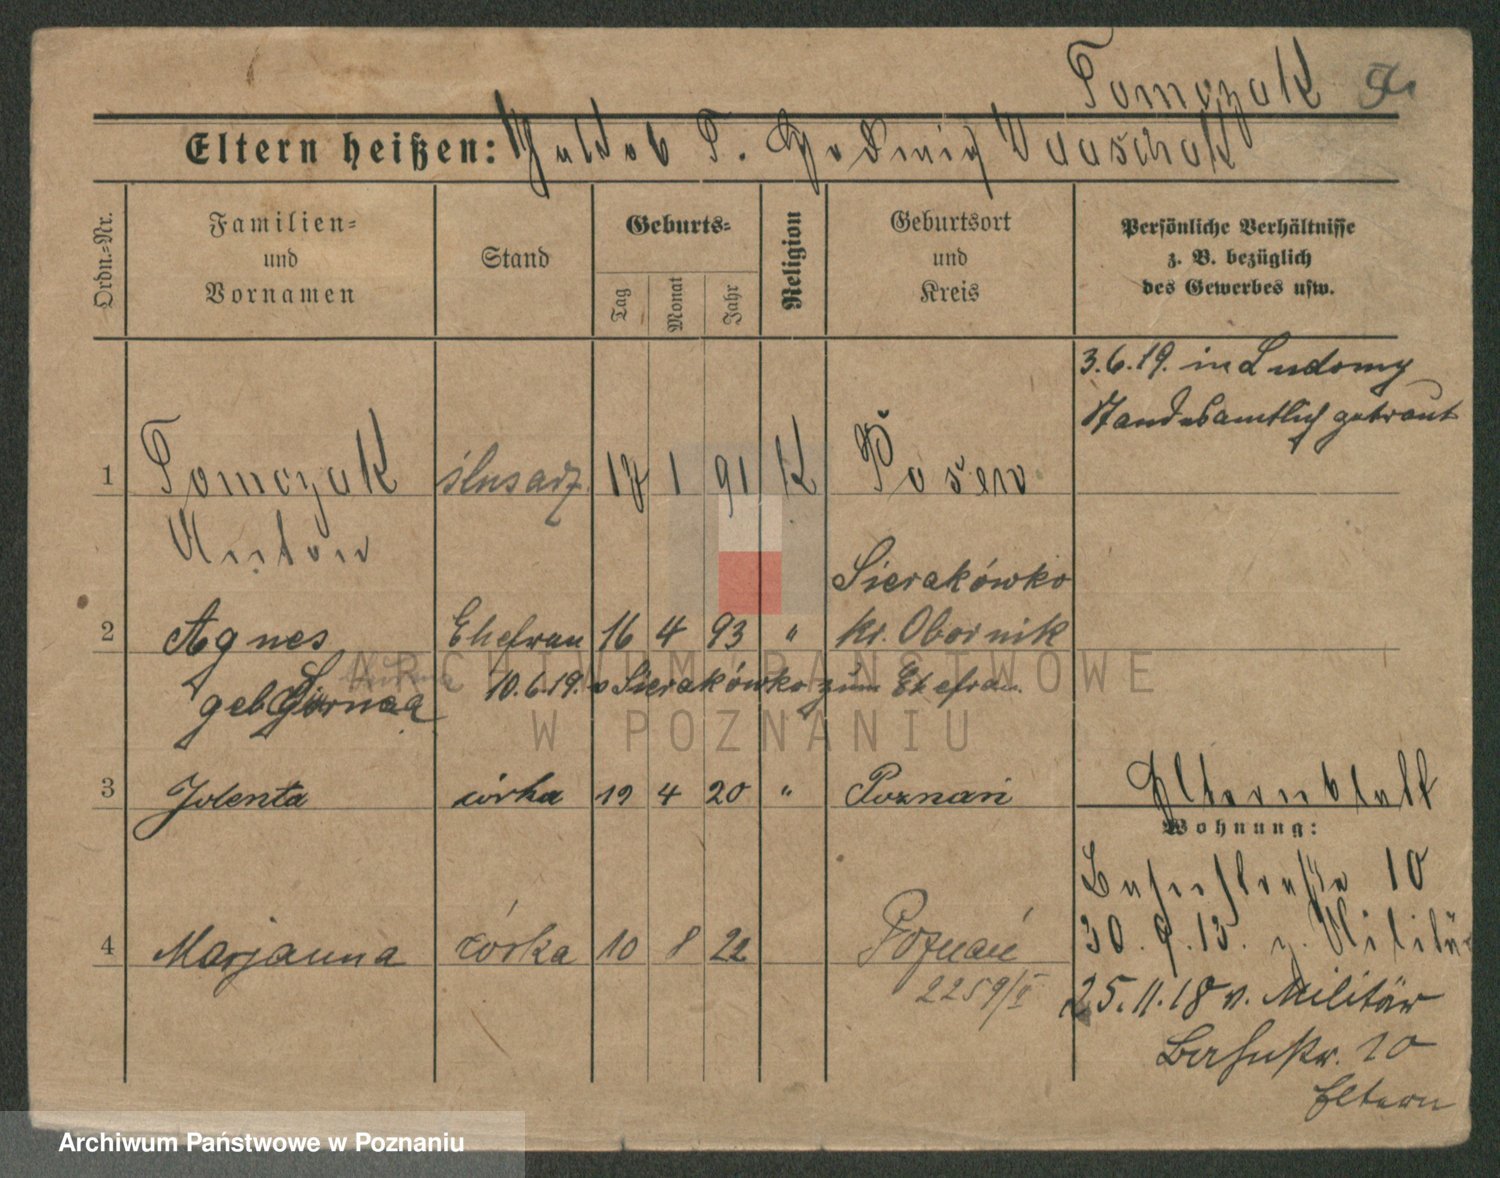 Tomczak
Eltern heißen: Jakob T. Hedwig Walschak
Ordn.=Nr.
Familien= und Vornamen
Stand
Geburts=
Tag
Monat
Jahr
Religion
Geburtsort und Kreis
Persönliche Verhältnisse
z. B. bezüglich
des Gewerbes usw.
3.6.19. in Ludomy
standesamtlich getraut
1 Tomczak ślusarz 17 1 91 K Posen
Anton
Sierakówko
2 Agnes Ehefrau 16 4 93 " kr. Obornik
geb. Górna 10.6.19. v Sierakówko zum Ehefrau
3 Jolenta córka 19 4 20 " Poznań
Elternblatt
Wohnung:
10
4 Marjanna córka 10 8 22 Poznań
2259/II
30.9.15. z. Militär
25.11.18 v. Militär
10
Eltern
ARCHIWUM PAŃSTWOWE
W POZNANIU
Archiwum Państwowe w Poznaniu